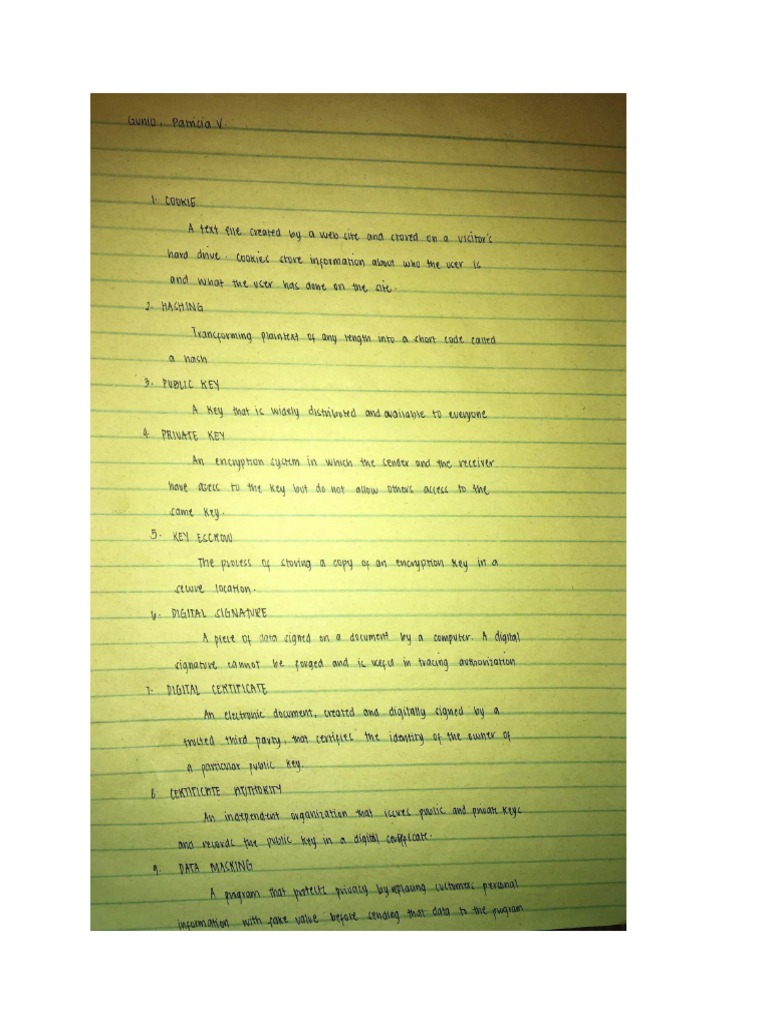 Gunio, Patricia V.
1. COOKIE
A text file created by a web site and stored on a visitor's
hard drive. Cookies store information about who the user is
and what the user has done on the site.
2. HASHING
Transforming plaintext of any length into a short code called
a hash
3. PUBLIC KEY
A key that is widely distributed and available to everyone
4. PRIVATE KEY
An encryption system in which the sender and the receiver
have asess to the key but do not allow others access to the
same key.
5. KEY ESCROW
The process of storing a copy of an encryption key in a
secure location.
6. DIGITAL SIGNATURE
A piece of data signed on a document by a computer. A digital
signature cannot be forged and is useful in tracing authorization
7. DIGITAL CERTIFICATE
An electronic document, created and digitally signed by a
trusted third party, that certifies the identity of the owner of
a particular public key.
8. CERTIFICATE AUTHORITY
An independent organization that issues public and private keys
and records the public key in a digital certificate.
9. DATA MASKING
A program that protects privacy by replacing customers personal
information with fake value before sending that data to the program